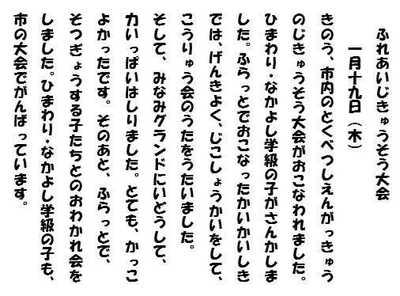 ふれあいじきゅうそう大会
一月十九日（木）
きのう、市内のとくべつしえんがっきゅう
のじきゅうそう大会がおこなわれました。
ひまわり・なかよし学級の子がさんかしま
した。ふらっとでおこなったかいかいしき
では、げんきよく、じこしょうかいをして、
こうりゅう会のうたをうたいました。
そして、みなみグランドにいどうして、
力いっぱいはしりました。とても、かっこ
よかったです。そのあと、ふらっとで、
そつぎょうする子たちとのおわかれ会を
しました。ひまわり・なかよし学級の子も、
市の大会でがんばっています。